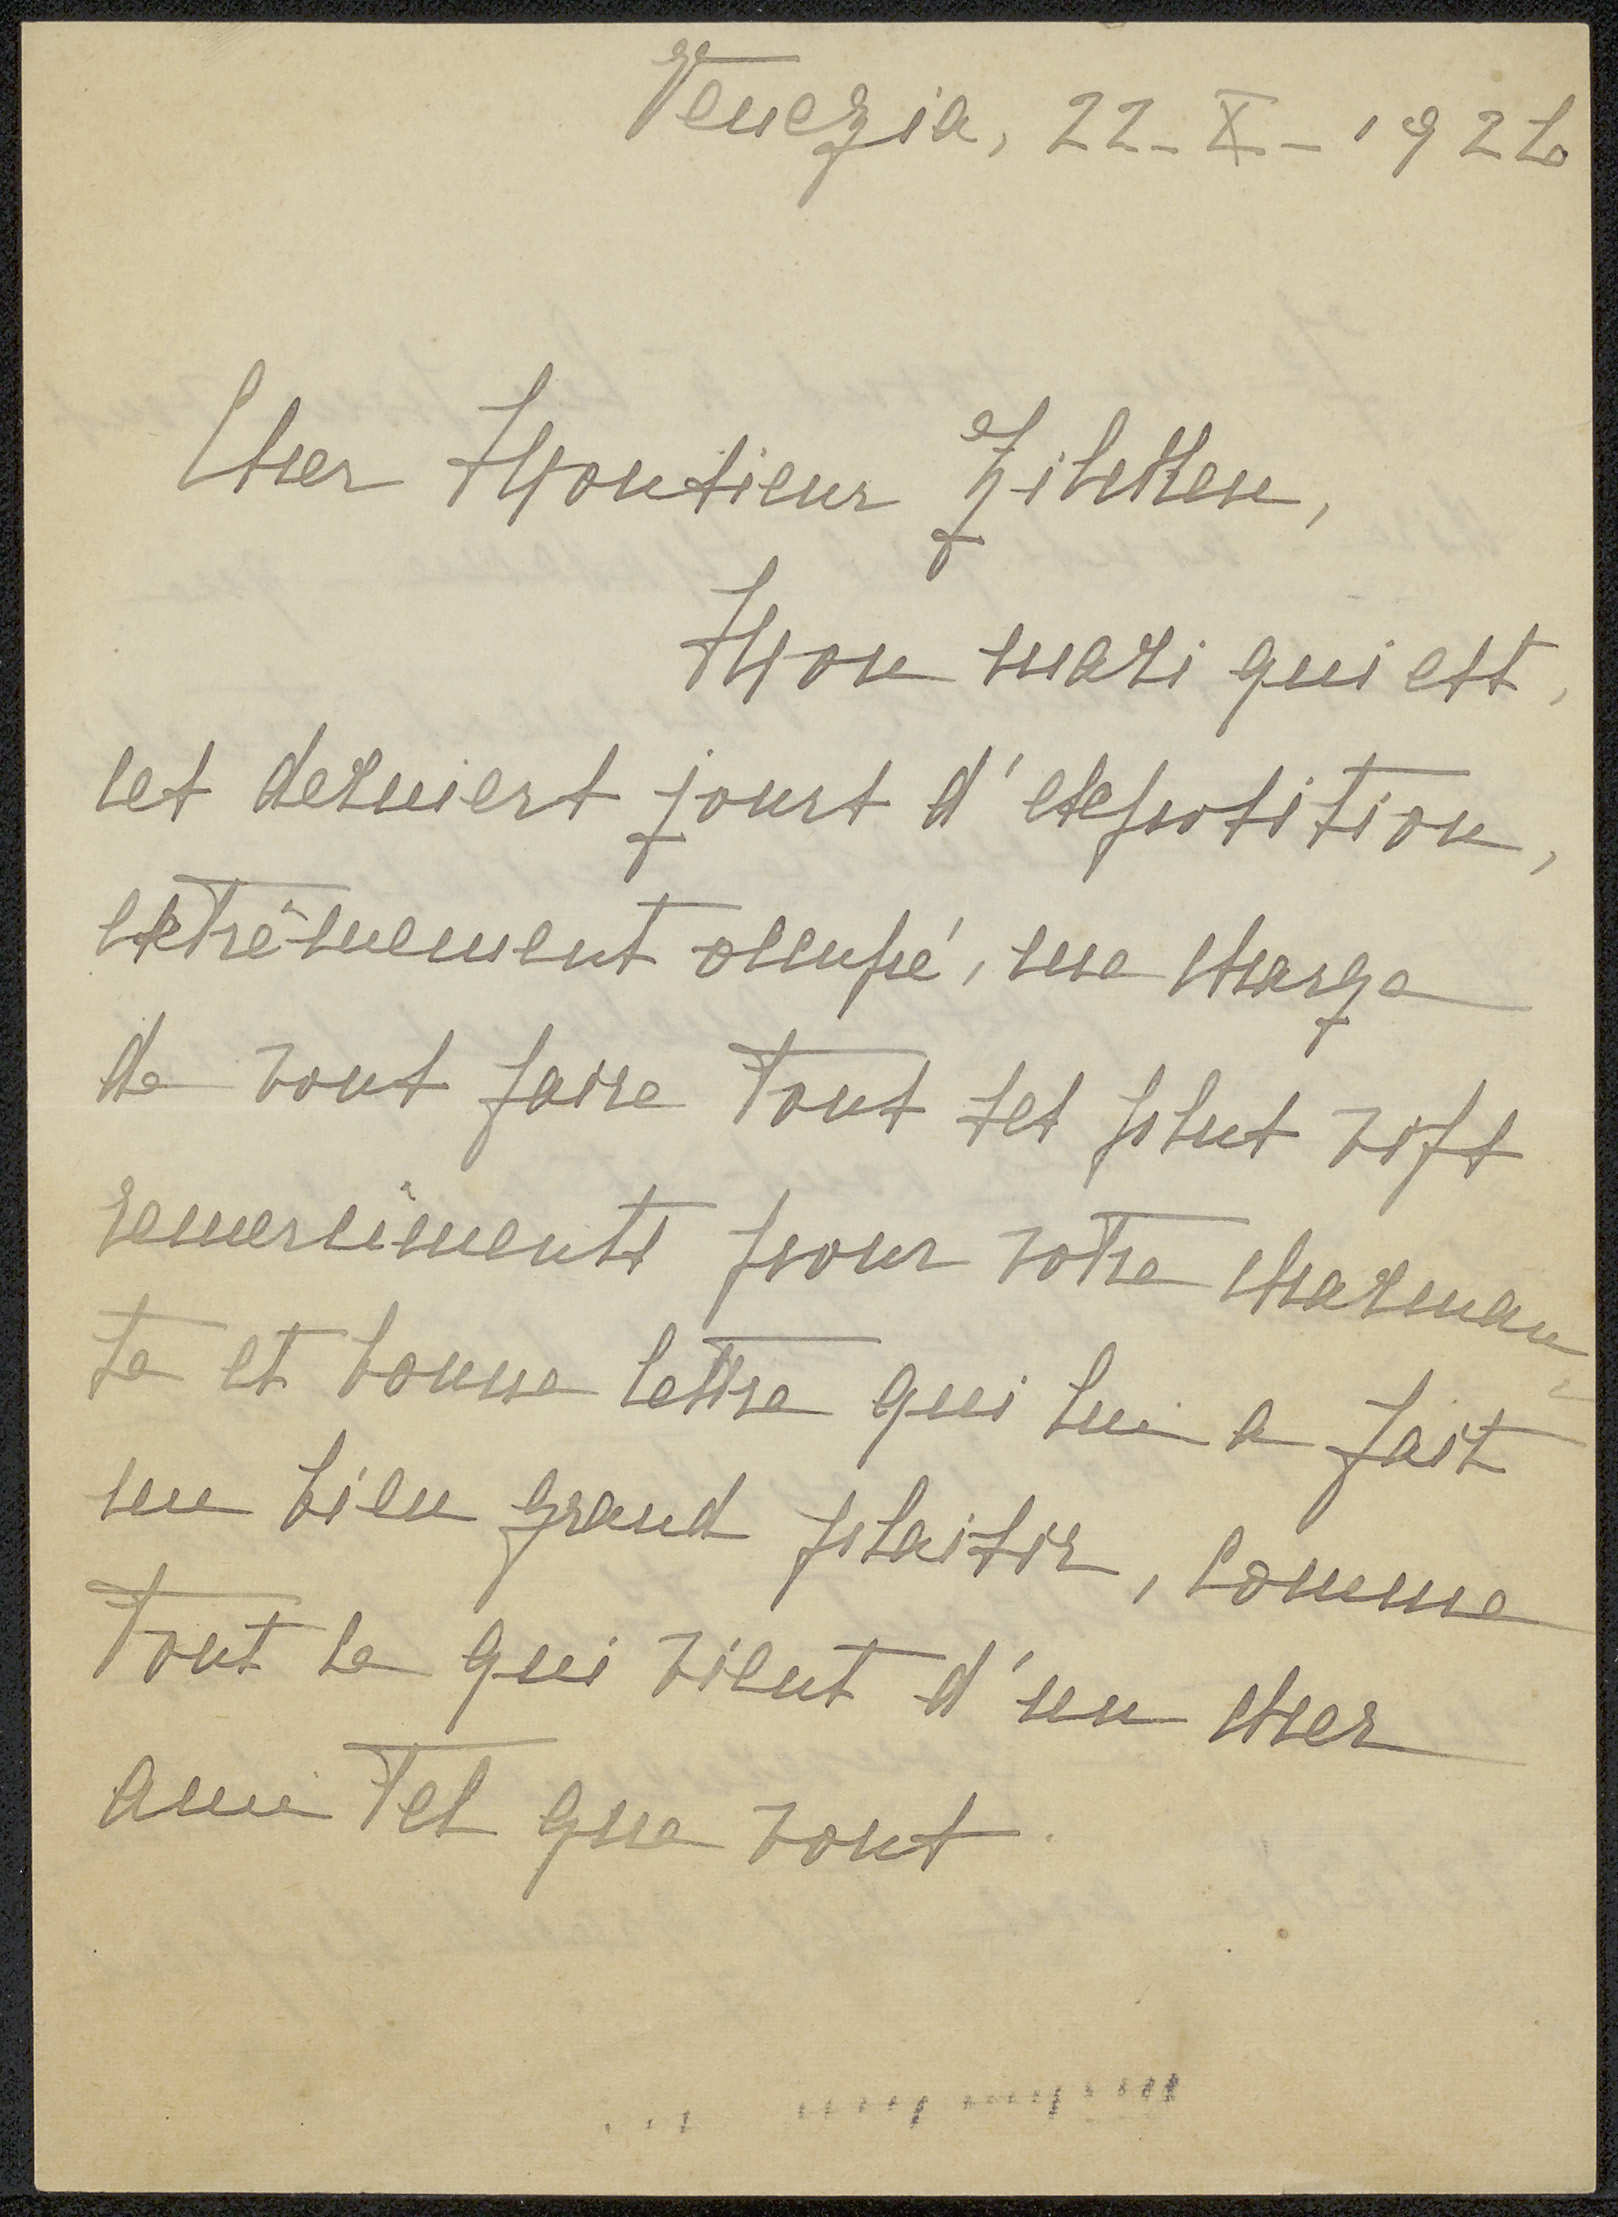 Venezia, 22-X-1926
Cher Monsieur Zilcken,
Mon mari qui est,
ces derniers jours d'exposition,
extrêmement occupé, me charge
de vous faire tous ses plus vifs
remercîments pour votre charman-
te et bonne lettre qui lui a fait
un bien grand plaisir, comme
tout ce qui vient d'un cher
ami tel que vous.